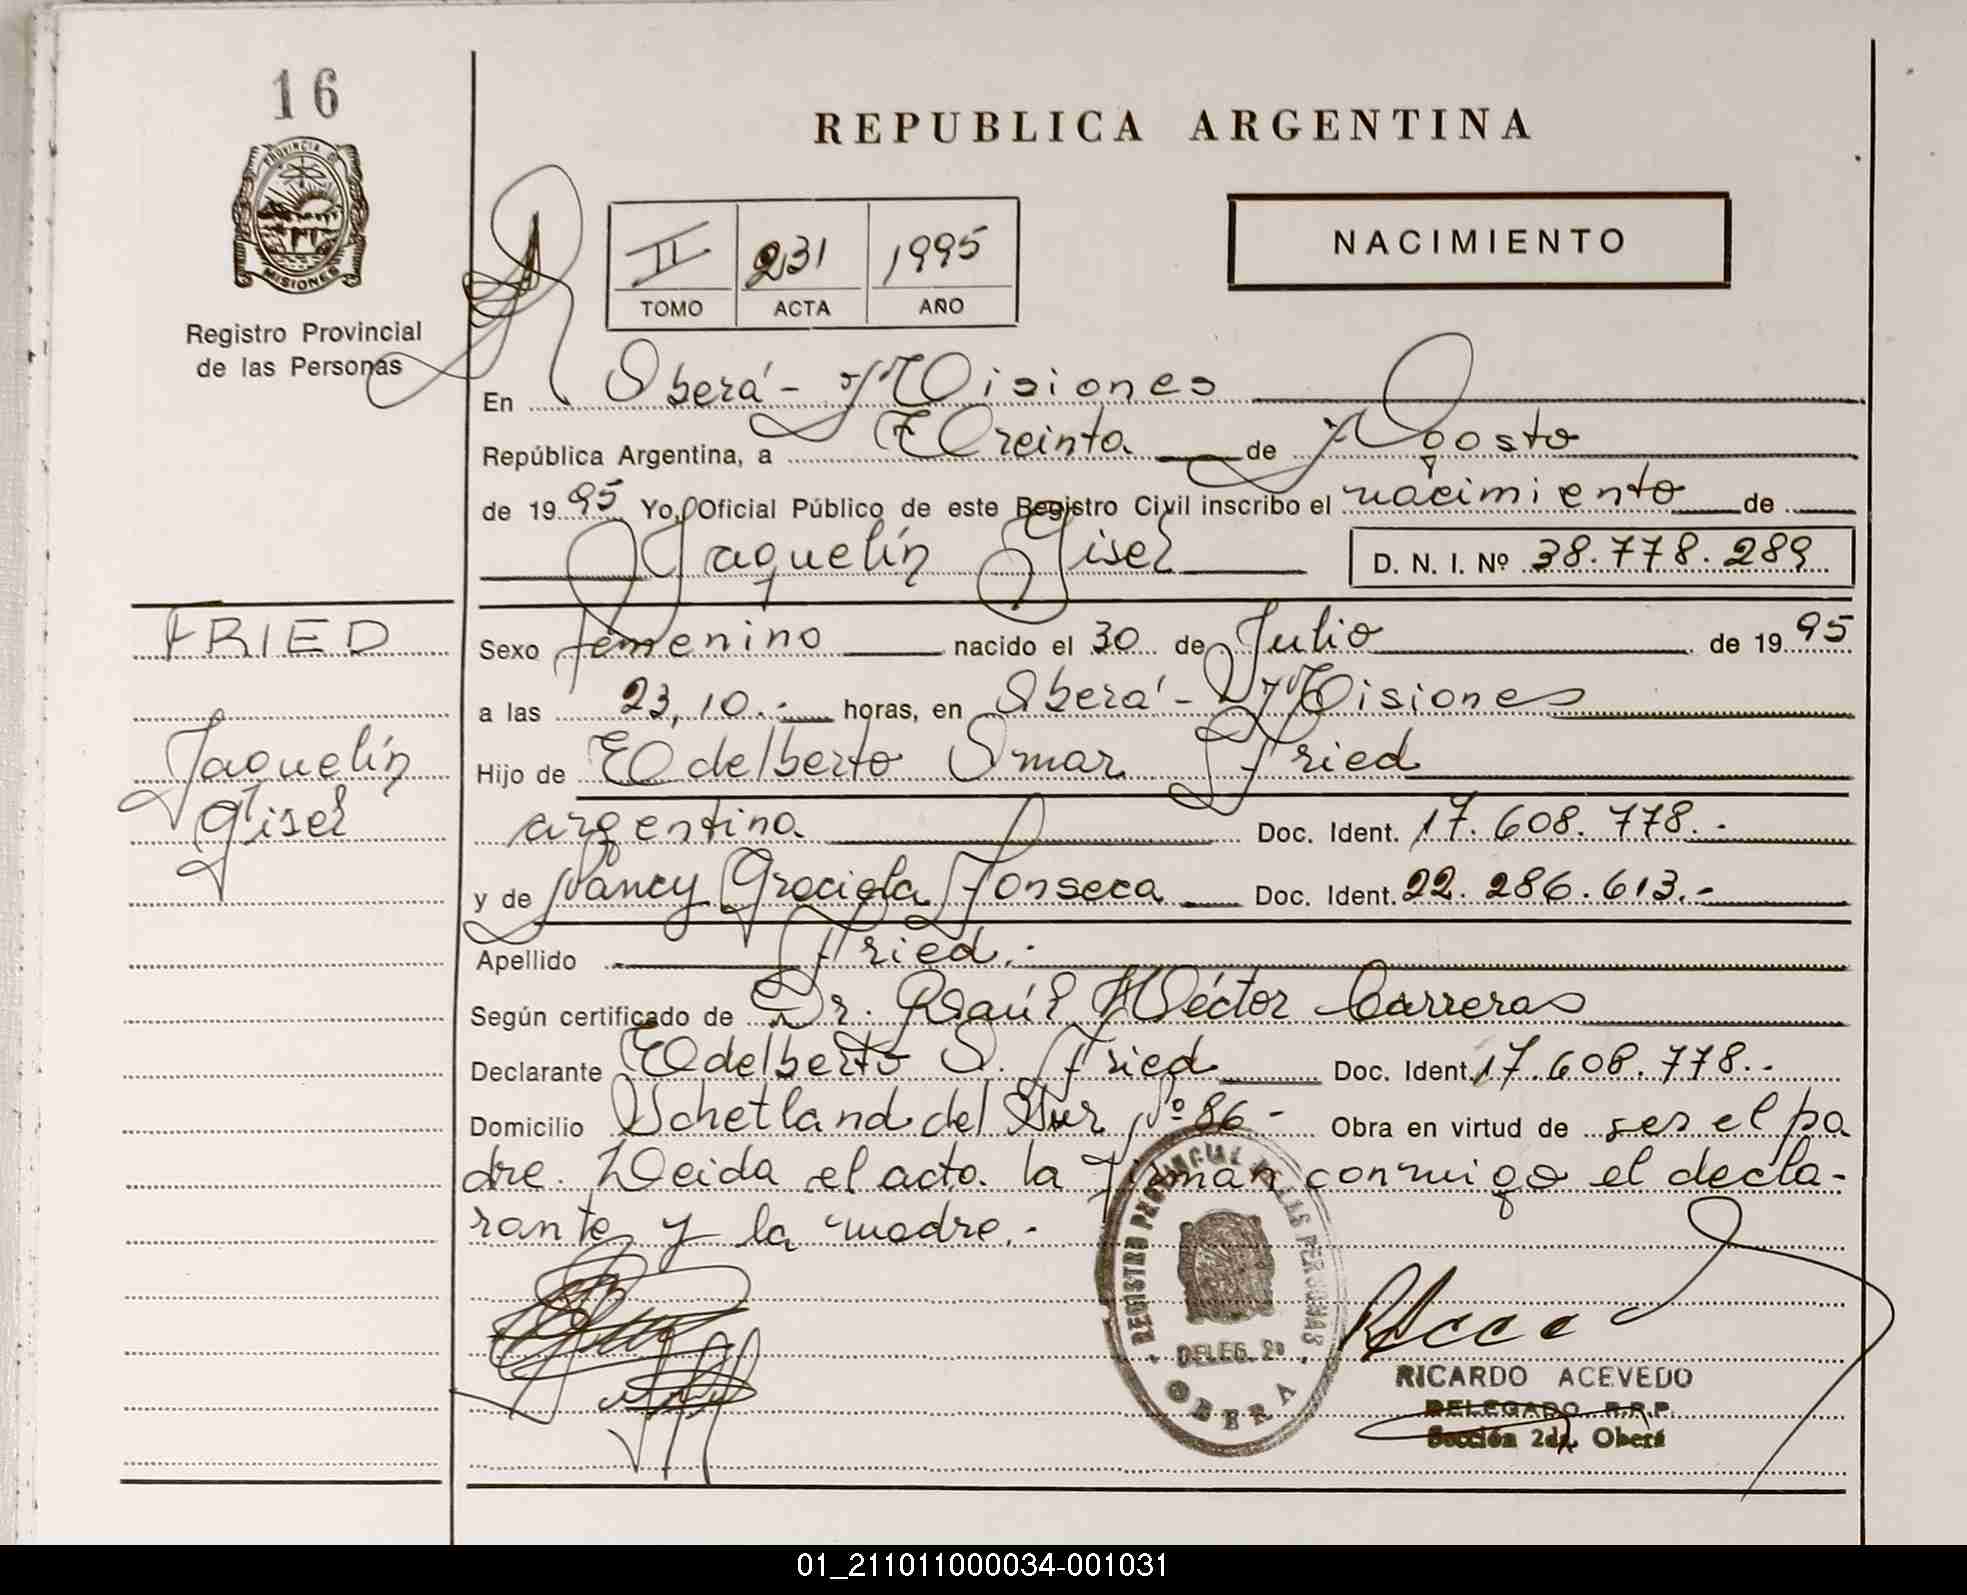 16
PROVINCIA DE
MISIONES
Registro Provincial
de las Personas
REPUBLICA ARGENTINA
II 231 1995
TOMO ACTA AÑO
NACIMIENTO
En Oberá - Misiones
República Argentina, a Treinta de Agosto
de 1995 Yo, Oficial Público de este Registro Civil inscribo el nacimiento de
Jaquelín Gisel D. N. I. Nº 38.778.289
FRIED
Jaquelín
Gisel
Sexo femenino nacido el 30 de Julio de 1995
a las 23,10.- horas, en Oberá - Misiones
Hijo de Edelberto Omar Fried
argentino Doc. Ident. 17.608.778.-
y de Nancy Graciela Fonseca Doc. Ident. 22.286.613.-
Apellido Fried.-
Según certificado de Dr. Raúl Héctor Carreras
Declarante Edelberto O. Fried Doc. Ident. 17.608.778.-
Domicilio Schetland del Sur Nº 86 - Obra en virtud de ser el pa
dre. Leida el acta la firman conmigo el decla-
rante y la madre.-
REGISTRO PROVINCIAL DE LAS PERSONAS
DELEG. 2a
OBERA
RICARDO ACEVEDO
DELEGADO R.R.P.
Sección 2da. Oberá
01_211011000034-001031